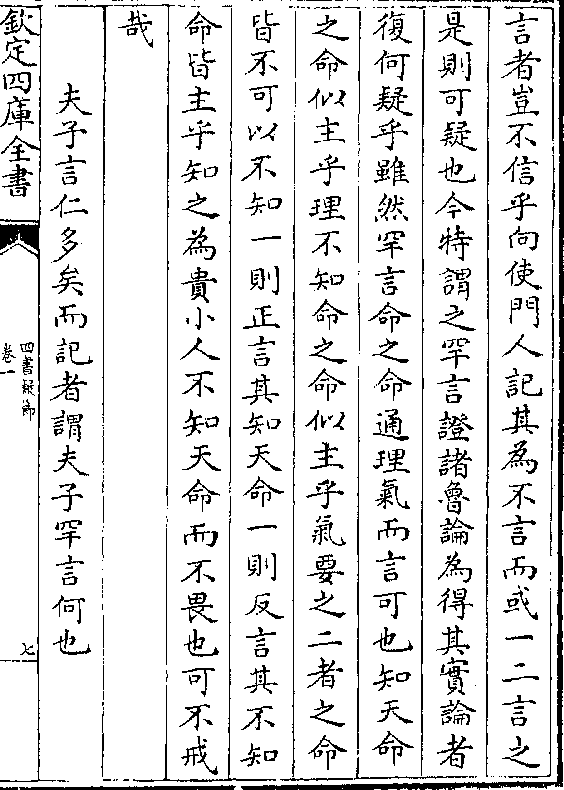 言者豈不信乎向使門人記其為不言而或一二言之
是則可疑也今特謂之罕言證諸魯論為得其實論者
復何疑乎雖然罕言命之命通理氣而言可也知天命
之命似主乎理不知命之命似主乎氣要之二者之命
皆不可以不知一則正言其知天命一則反言其不知
命皆主乎知之為貴小人不知天命而不畏也可不戒
哉
夫子言仁多矣而記者謂夫子罕言何也
欽定四庫全書
四書疑節
卷一
七